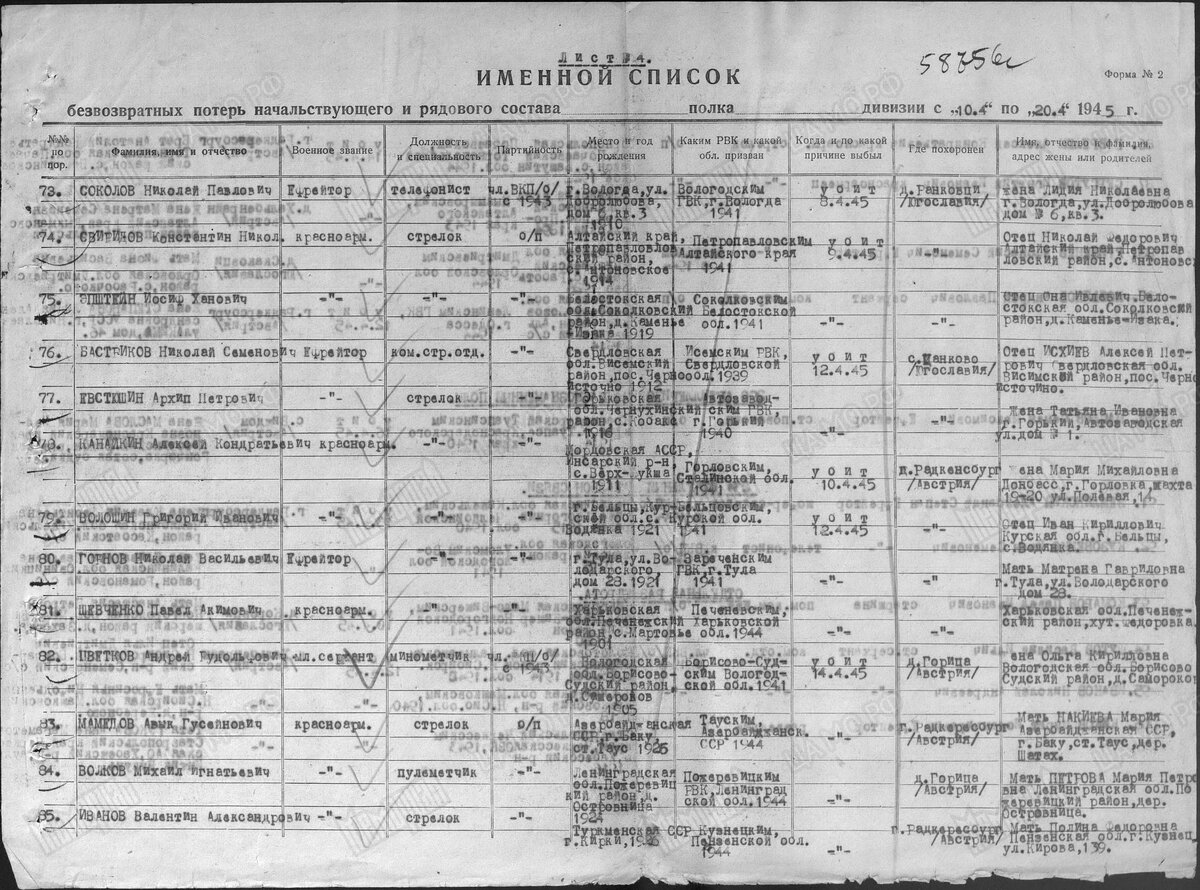 Лист №4.
58756с
ИМЕННОЙ СПИСОК
Форма № 2
безвозвратных потерь начальствующего и рядового состава полка дивизии с „10.4“ по „20.4“ 1945 г.
№№ по пор.
Фамилия, имя и отчество
Военное звание
Должность и специальность
Партийность
Место и год рождения
Каким РВК и какой обл. призван
Когда и по какой причине выбыл
Где похоронен
Имя, отчество и фамилия, адрес жены или родителей
73. СОКОЛОВ Николай Павлович Ефрейтор телефонист чл.ВКП/б/ г.Вологда,ул. Вологодским убит д.Ранковци жена Лидия Николаевна
с 1943 Добролюбова, ГВК,г.Вологда 8.4.45 /Югославия/ г.Вологда,ул.Добролюбова
дом 6 кв.3 1941 дом № 6,кв.3.
1910
74. СВИРИНОВ Константин Никол. красноарм. стрелок б/п Алтайский край, Петропавловским убит -"- Отец Николай Федорович
Петропавлов Алтайского края 9.4.45 Алтайский край Петропав
ский район, 1941 ловский район,с.Антоновс
с.Антоновское
1914
75. ЭПШТЕЙН Иосиф Ханович -"- -"- -"- Белостокская Соколковским -"- -"- Бело-
обл.Соколковский Белостокской стокская обл.Соколковский
район,д.Каменье обл.1941 район,д.Каменье-Изака.
Изака 1919
76. БАСТРИКОВ Николай Семенович Ефрейтор ком.стр.отд. -"- Свердловская РВК, убит с.Цанково Отец Алексей Пет-
обл.Висемский Свердловской 12.4.45 /Югославия/ рович Свердловская обл.
район,пос.Черно обл.1939 Висимский район,пос.Черн
Источно 1912 Источино.
77. ЕВСТЮШИН Архип Петрович -"- стрелок -"- Горьковская Автозавод- -"- -"- Жена Татьяна Ивановна
обл.Чернухинский ским РВК, г.Горький,Автозаводская
район,с. г.Горький ул.дом № 1.
1916 1940
78. КАНАЙКИН Алексей Кондратьевич красноарм. -"- -"- Мордовская АССР,
Инсарский р-н, Горловским, убит д.Радкенсбург Жена Мария Михайловна
с.Верх- Сталинской обл. 10.4.45 /Австрия/ Донбасс,г.Горловка,шахта
1911 1941 19-20 ул.Полевая,14.
79. ВОЛОШИН Григорий Иванович -"- -"- -"- г.Бельцы,Кур- убит -"- Отец Иван Кириллович
ской обл.с. Курской обл. 12.4.45 Курская обл.г.Бельцы,
Водянка 1921 1941 с.Водянка.
80. ГОЧНОВ Николай Васильевич Ефрейтор -"- -"- г.Тула,ул.Во- Зареченским -"- -"- Мать Матрена Гавриловна
лодарского ГВК,г.Тула г.Тула,ул.Володарского
дом 28.1921 1941 Дом 28.
81. ШЕВЧЕНКО Павел Акимович красноарм. -"- -"- Харьковская Печеневским, -"- -"- Харьковская обл.Печенеж-
обл.Печенежский Харьковской ский район,хут.Федоровка.
район,с.Мартовье обл.1944
1901
82. ЦВЕТКОВ Андрей Рудольфович мл.сержант минометчик чл.ВКП/б/ Вологодская Борисово-Суд- убит д.Горица Жена Ольга Кирилловна
с 1943 обл.Борисово- ским Вологод- 14.4.45 /Австрия/ Вологодская обл.Борисово
Судский район, ской обл.1941 Судский район,
1905
83. МАМЕДОВ Авык Гусейнович красноарм. стрелок б/п Азербайджанская Тауским, -"- г.Радкерсбург Мать НАКИЕВА Мария
ССР,г.Баку, Азербайджанск. /Австрия/ Азербайджанская ССР,
ст.Таус 1926 ССР 1944 г.Баку,ст.Таус,дер.
Шатах.
84. ВОЛКОВ Михаил Игнатьевич -"- пулеметчик -"- Ленинградская Пожеревицким -"- д.Горица Мать ПЕТРОВА Мария Петро
обл.Пожеревиц РВК,Ленинград /Австрия/ вна Ленинградская обл.По
кий район,д. ской обл.1944 жеревицкий район,дер.
Островница Островница.
1924
85. ИВАНОВ Валентин Александрович -"- стрелок -"- Туркменская ССР Кузнецким, -"- г.Радкерсбург Мать Полина Федоровна
г.Кирки, Пензенской обл. /Австрия/ Пензенская обл.г.Кузнец
1944 ул.Кирова,139.